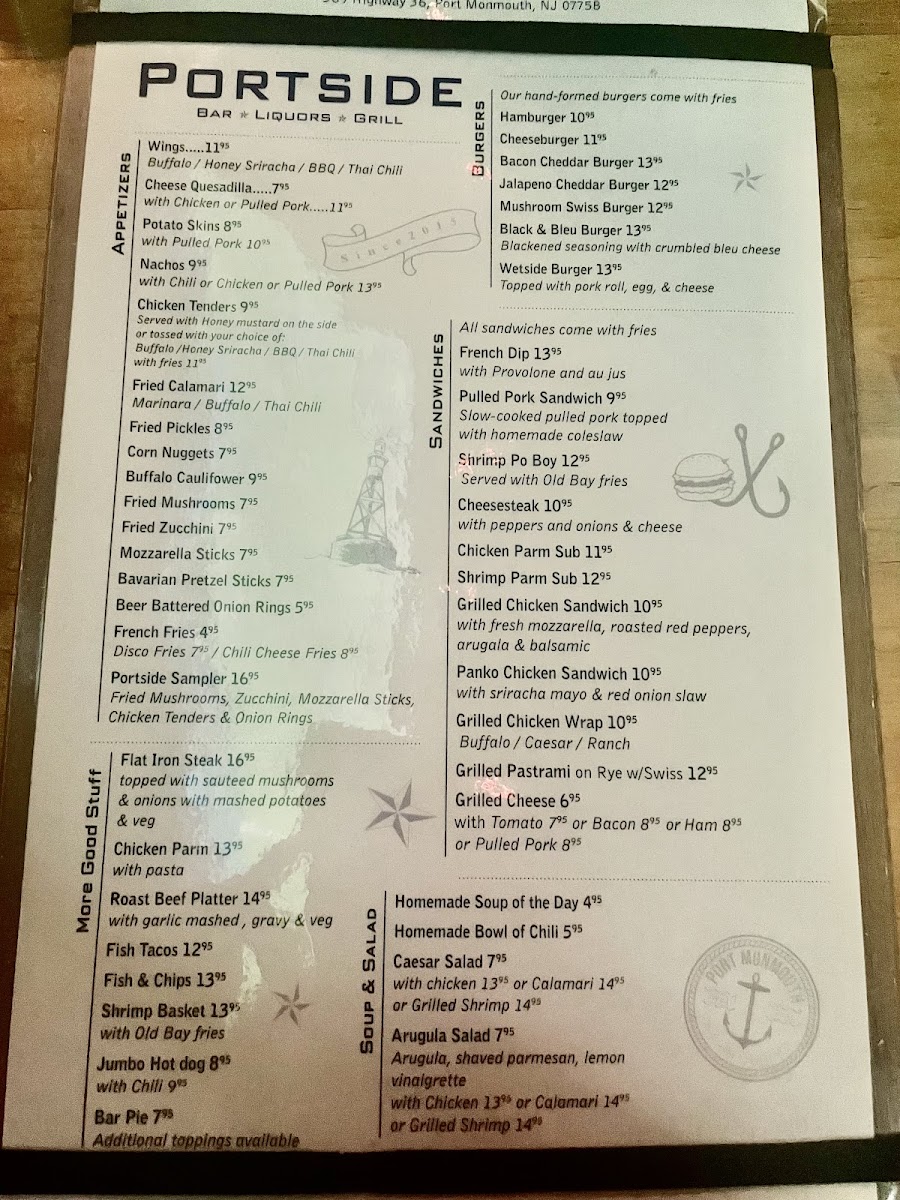 Highway 36, Port Monmouth, NJ 07758
PORTSIDE
BAR ★ LIQUORS ★ GRILL
APPETIZERS
Wings.....11⁹⁵
Buffalo / Honey Sriracha / BBQ / Thai Chili
Cheese Quesadilla.....7⁹⁵
with Chicken or Pulled Pork.....11⁹⁵
Potato Skins 8⁹⁵
with Pulled Pork 10⁹⁵
Nachos 9⁹⁵
with Chili or Chicken or Pulled Pork 13⁹⁵
Chicken Tenders 9⁹⁵
Served with Honey mustard on the side
or tossed with your choice of:
Buffalo /Honey Sriracha / BBQ / Thai Chili
with fries 11⁹⁵
Fried Calamari 12⁹⁵
Marinara / Buffalo / Thai Chili
Fried Pickles 8⁹⁵
Corn Nuggets 7⁹⁵
Buffalo Caulifower 9⁹⁵
Fried Mushrooms 7⁹⁵
Fried Zucchini 7⁹⁵
Mozzarella Sticks 7⁹⁵
Bavarian Pretzel Sticks 7⁹⁵
Beer Battered Onion Rings 5⁹⁵
French Fries 4⁹⁵
Disco Fries 7⁹⁵ / Chili Cheese Fries 8⁹⁵
Portside Sampler 16⁹⁵
Fried Mushrooms, Zucchini, Mozzarella Sticks,
Chicken Tenders & Onion Rings
Since 2015
More Good Stuff
Flat Iron Steak 16⁹⁵
topped with sauteed mushrooms
& onions with mashed potatoes
& veg
Chicken Parm 13⁹⁵
with pasta
Roast Beef Platter 14⁹⁵
with garlic mashed , gravy & veg
Fish Tacos 12⁹⁵
Fish & Chips 13⁹⁵
Shrimp Basket 13⁹⁵
with Old Bay fries
Jumbo Hot dog 8⁹⁵
with Chili 9⁹⁵
Bar Pie 7⁹⁵
Additional toppings available
BURGERS
Our hand-formed burgers come with fries
Hamburger 10⁹⁵
Cheeseburger 11⁹⁵
Bacon Cheddar Burger 13⁹⁵
Jalapeno Cheddar Burger 12⁹⁵
Mushroom Swiss Burger 12⁹⁵
Black & Bleu Burger 13⁹⁵
Blackened seasoning with crumbled bleu cheese
Wetside Burger 13⁹⁵
Topped with pork roll, egg, & cheese
SANDWICHES
All sandwiches come with fries
French Dip 13⁹⁵
with Provolone and au jus
Pulled Pork Sandwich 9⁹⁵
Slow-cooked pulled pork topped
with homemade coleslaw
Shrimp Po Boy 12⁹⁵
Served with Old Bay fries
Cheesesteak 10⁹⁵
with peppers and onions & cheese
Chicken Parm Sub 11⁹⁵
Shrimp Parm Sub 12⁹⁵
Grilled Chicken Sandwich 10⁹⁵
with fresh mozzarella, roasted red peppers,
arugala & balsamic
Panko Chicken Sandwich 10⁹⁵
with sriracha mayo & red onion slaw
Grilled Chicken Wrap 10⁹⁵
Buffalo / Caesar / Ranch
Grilled Pastrami on Rye w/Swiss 12⁹⁵
Grilled Cheese 6⁹⁵
with Tomato 7⁹⁵ or Bacon 8⁹⁵ or Ham 8⁹⁵
or Pulled Pork 8⁹⁵
SOUP & SALAD
Homemade Soup of the Day 4⁹⁵
Homemade Bowl of Chili 5⁹⁵
Caesar Salad 7⁹⁵
with chicken 13⁹⁵ or Calamari 14⁹⁵
or Grilled Shrimp 14⁹⁵
Arugula Salad 7⁹⁵
Arugula, shaved parmesan, lemon
vinalgrette
with Chicken 13⁹⁵ or Calamari 14⁹⁵
or Grilled Shrimp 14⁹⁵
PORT MONMOUTH